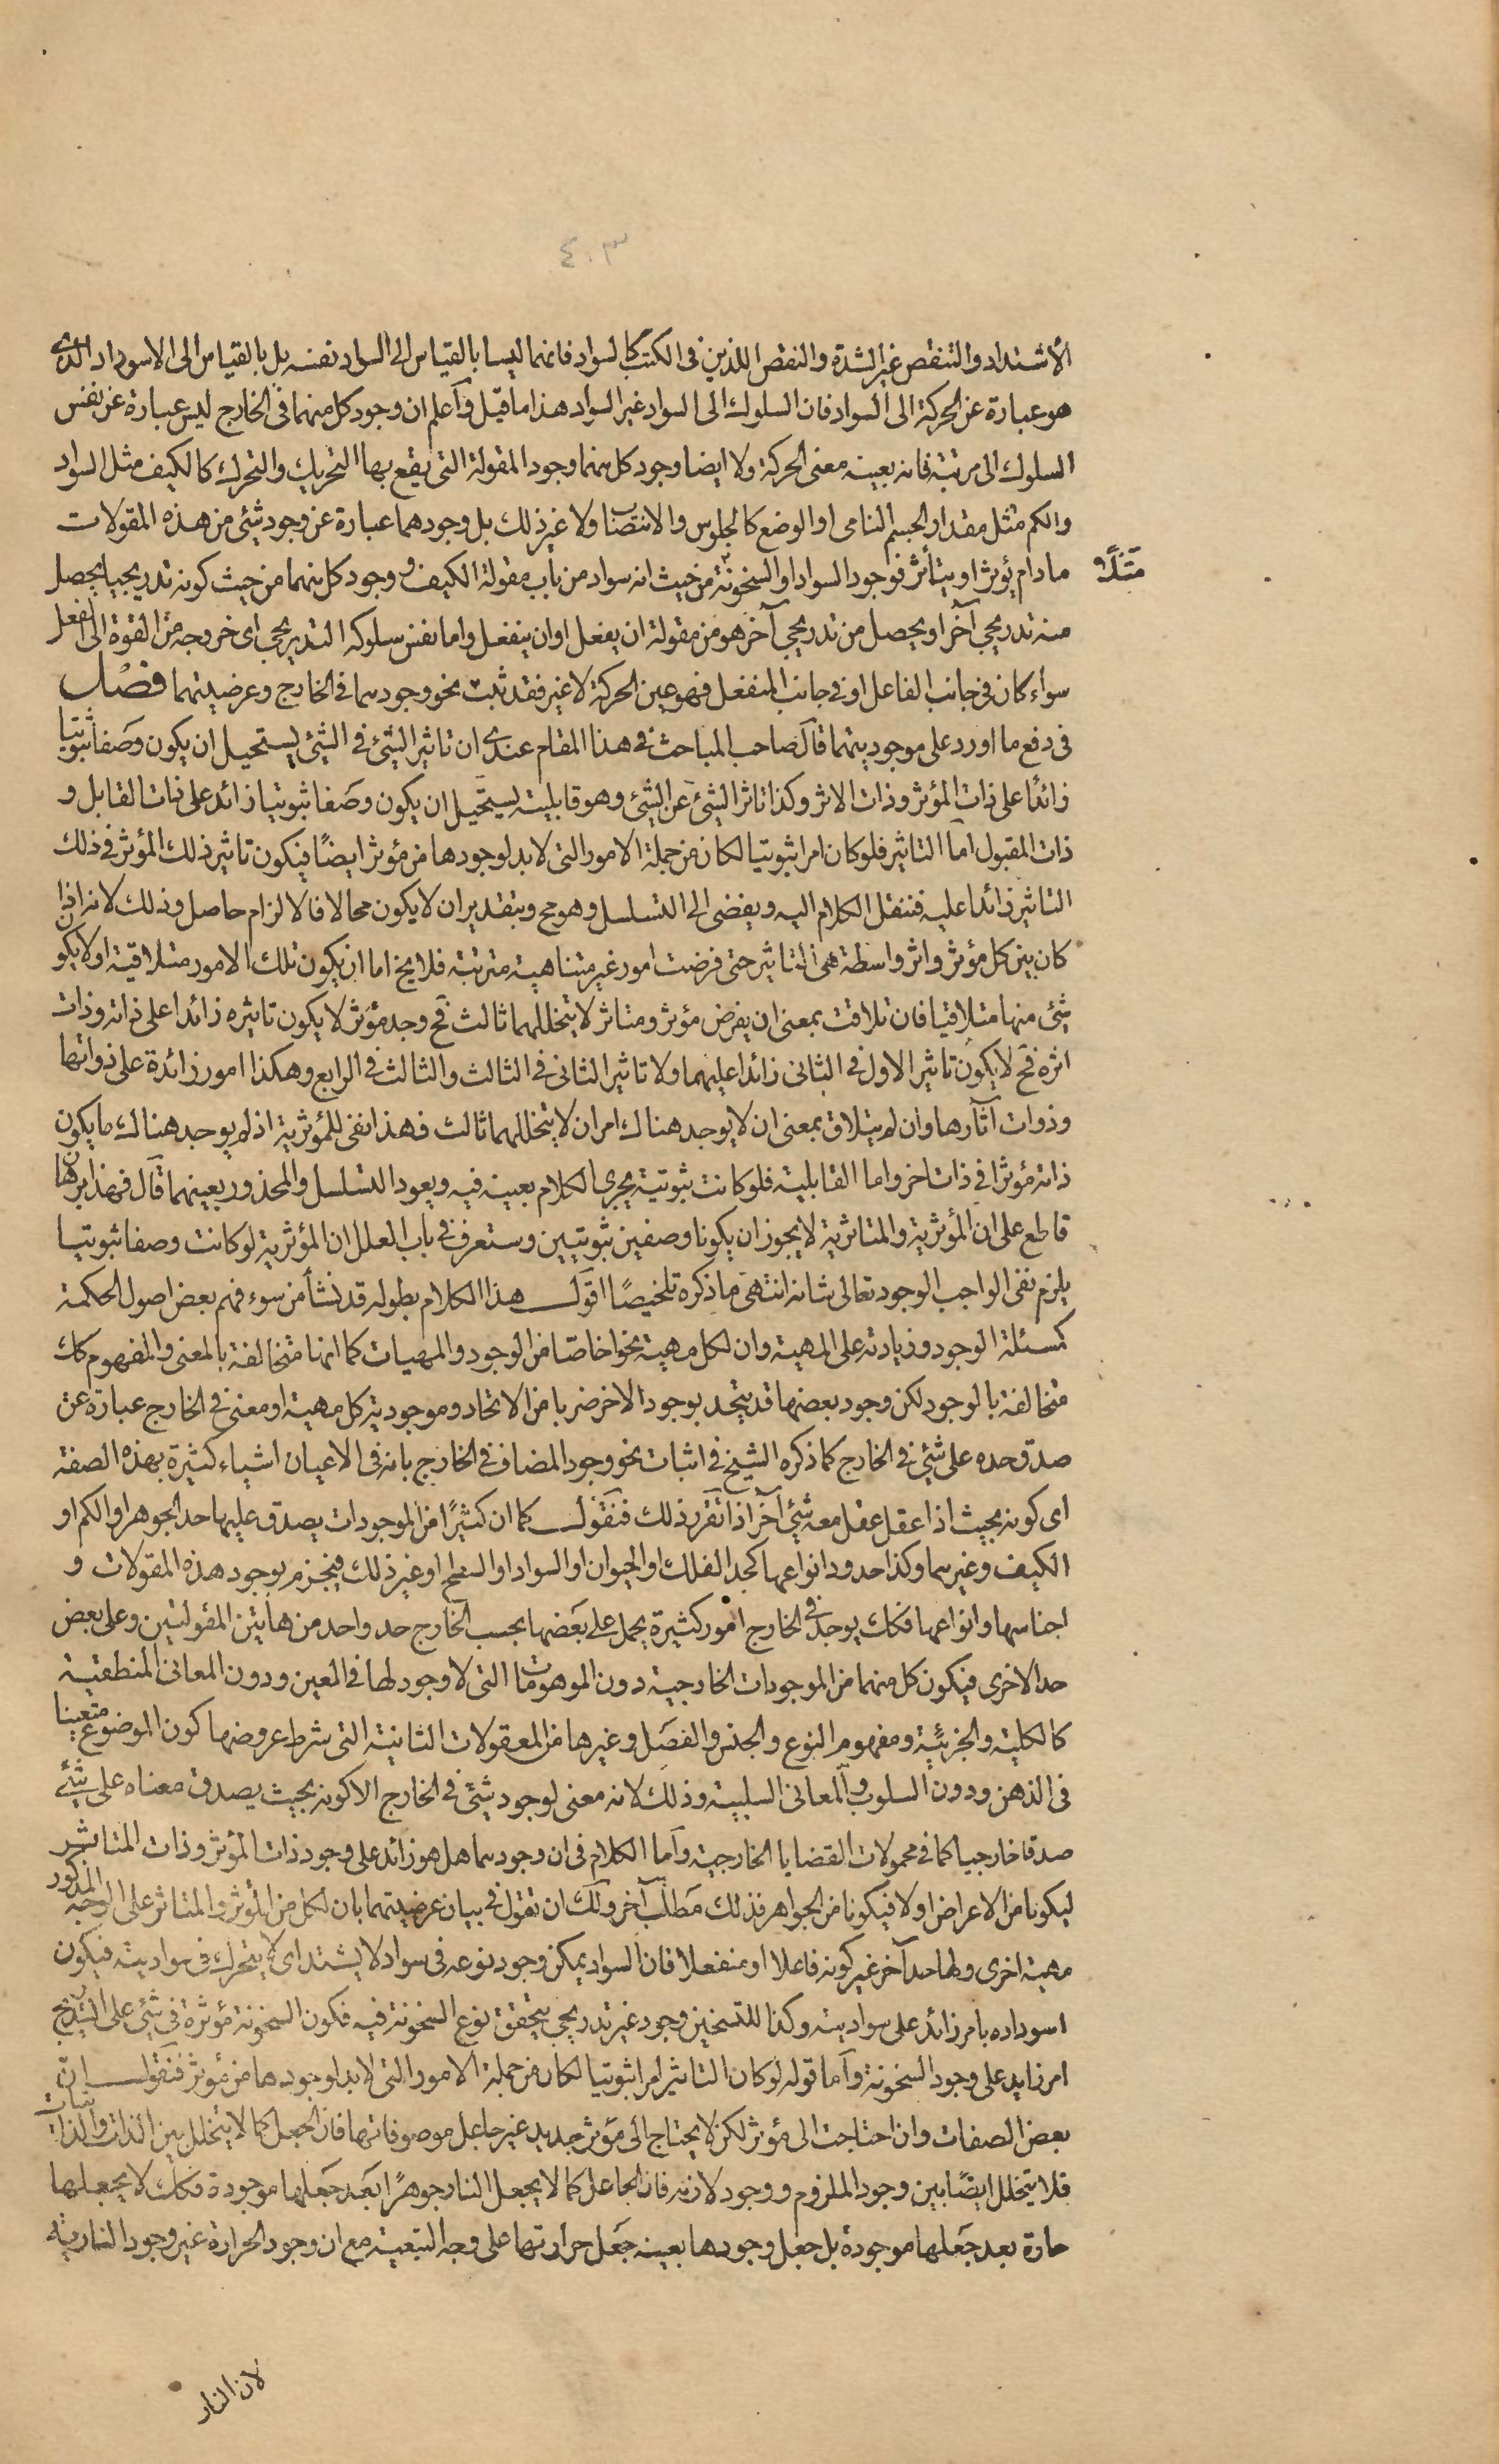 ٤٠٣
الاشتداد والتنقص غير الشدة والنقص اللذين فى الكتب كالسواد فانهما ليسا بالقياس الى السواد نفسه بل بالقياس الى الاسوداد الذى
هو عبارة عن الحركة الى السواد فان السلوك الى السواد غير السواد هذا ما قيل وآعلم ان وجود كل منهما فى الخارج ليس عبارة عن نفس
السلوك الى مرتبة فانه بعينه معنى الحركة ولا ايضا وجود كل منهما وجود المقولة التى يقع بها التحريك والتحرك كالكيف مثل السواد
والكم مثل مقدار الجسم النامى او الوضع كالجلوس والانتصاب ولا غير ذلك بل وجودهما عبارة عن وجود شئ من هذه المقولات
مادام يؤثر او يتأثر فوجود السواد او السخونة من حيث انه سواد من باب مقولة الكيف و وجود كل منهما من حيث كونه تدريجيا يحصل
مثلا
منه تدريجى آخر او يحصل من تدريجى آخر هو من مقولة ان يفعل او ان ينفعل واما نفس سلوكه التدريجى اى خروجه من القوة الى الفعل
سواء كان فى جانب الفاعل او فى جانب المنفعل فهو عين الحركة لا غير فقد ثبت نحو وجودهما فى الخارج وعرضيتهما فصل
فى دفع ما اورد على موجوديتهما قآل صاحب المباحث فى هذا المقام عندى ان تاثير الشئ فى الشئ يستحيل ان يكون وصفا ثبوتيا
زائدا على ذات المؤثر وذات الاثر وكذا تاثر الشئ عن الشئ وهو قابليته يستحيل ان يكون وصفا ثبوتيا زائد على ذات القابل و
ذات المقبول اما التاثير فلو كان امرا ثبوتيا لكان من جملة الامور التى لابد لوجودها من مؤثر ايضًا فيكون تاثير ذلك المؤثر فى ذلك
التاثير زائدا عليه فننقل الكلام اليه ويفضى الى التسلسل وهو مح وبتقدير ان لا يكون محالا فالالزام حاصل وذلك لانه اذا
كان بين كل مؤثر واثر واسطة هى التاثير حتى فرضت امور غير متناهية مترتبة فلا يخ اما ان يكون تلك الامور متلاقية او لا يكون
شئ منها متلاقيا فان تلاقت بمعنى ان يفرض مؤثر ومتاثر لا يتخللهما ثالث فح وجد مؤثر لا يكون تاثيره زائدا على ذاته وذات
اثره فح لا يكون تاثير الاول فى الثانى زائدا عليهما ولا تاثير الثانى فى الثالث والثالث فى الرابع وهكذا امور زائدة على ذواتها
وذوات اثآرها وان لم يتلاق بمعنى ان لا يوجد هناك امران لا يتخللهما ثالث فهذا نفى للمؤثرية اذ لم يوجد هناك ما يكون
ذاته مؤثرا فى ذات اخر واما القابلية فلو كانت ثبوتية يجرى الكلام بعينه فيه ويعود التسلسل والمحذور بعينهما قآل فهذا برهان
قاطع على ان المؤثرية والمتاثرية لا يجوز ان يكونا وصفين ثبوتيين وستعرف فى باب العلل ان المؤثرية لو كانت وصفا ثبوتيا
يلزم نفى الواجب الوجود تعالى شانه انتهى ما ذكره تلخيصًا اقول هذا الكلام بطوله قد نشأ من سوء فهم بعض اصول الحكمة
كمسئلة الوجود وزيادته على المهية وان لكل مهية نحوا خاصّا من الوجود والمهيات كما انها متخالفة بالمعنى والمفهوم كك
متخالفة بالوجود لكن وجود بعضها قد يتحد بوجود الاخر ضربا من الاتحاد وموجودية كل مهية او معنى فى الخارج عبارة عن
صدق حده على شئ فى الخارج كما ذكره الشيخ فى اثبات نحو وجود المضاف فى الخارج بانه فى الاعيان اشياء كثيرة بهذه الصفة
اى كونه بحيث اذا عقل عقل معه شئ آخر اذا تقرر ذلك فنقول كما ان كثيرًا من الموجودات يصدق عليها حد الجوهر او الكم او
الكيف وغيرهما وكذا حدود انواعها كحد الفلك او الحيوان او السواد او السطح او غير ذلك فيجزم بوجود هذه المقولات و
اجناسها وانواعها فكك يوجد فى الخارج امور كثيرة يحمل على بعضها بحسب الخارج حد واحد من هاتين المقولتين وعلى بعض
حد الاخرى فيكون كل منهما من الموجودات الخارجية دون الموهومات التى لا وجود لها فى العين ودون المعانى المنطقية
كالكلية والجزئية ومفهوم النوع والجنس والفصل وغيرها من المعقولات الثانية التى شرط عروضها كون الموضوع متعينا
فى الذهن ودون السلوب والمعانى السلبية وذلك لانه معنى لوجود شئ فى الخارج الا كونه بحيث يصدق معناه على شئ
صدقا خارجيا كما فى محمولات القضايا الخارجية وآما الكلام فى ان وجودهما هل هو زائد على وجود ذات المؤثر وذات المتاثر
ليكونا من الاعراض او لا فيكونا من الجواهر فذلك مطلب آخر ولك ان تقول فى بيان عرضيتهما بان لكل من المؤثر والمتاثر على الوجه المذكور
مهية اخرى ولها حد آخر غير كونه فاعلا او منفعلا فان السواد يمكن وجود نوعه فى سواد لا يشتد اى لا يتحرك فى سواديته فيكون
اسوداده بامر زائد على سواديته وكذا للتسخين وجود غير تدريجى يتحقق نوع السخونة فيه فكون السخونة مؤثرة فى شئ على التدريج
امر زايد على وجود السخونة وآما قوله لو كان التاثير امرا ثبوتيا لكان من جملة الامور التى لابد لوجودها من مؤثر فنقول ان
بعض الصفات وان احتاجت الى مؤثر لكن لا يحتاج الى مؤثر جديد غير جاعل موصوفاتها فان الجعل كما لا يتخلل بين الذات والذاتيات
فلا يتخلل ايضًا بين وجود الملزوم ووجود لازمه فان الجاعل كما لا يجعل النار جوهرًا بعد جعلها موجودة فكك لا يجعلها
حارة بعد جعلها موجودة بل جعل وجودها بعينه جعل حرارتها على وجه التبعية مع ان وجود الحرارة غير وجود النارية
لان النار